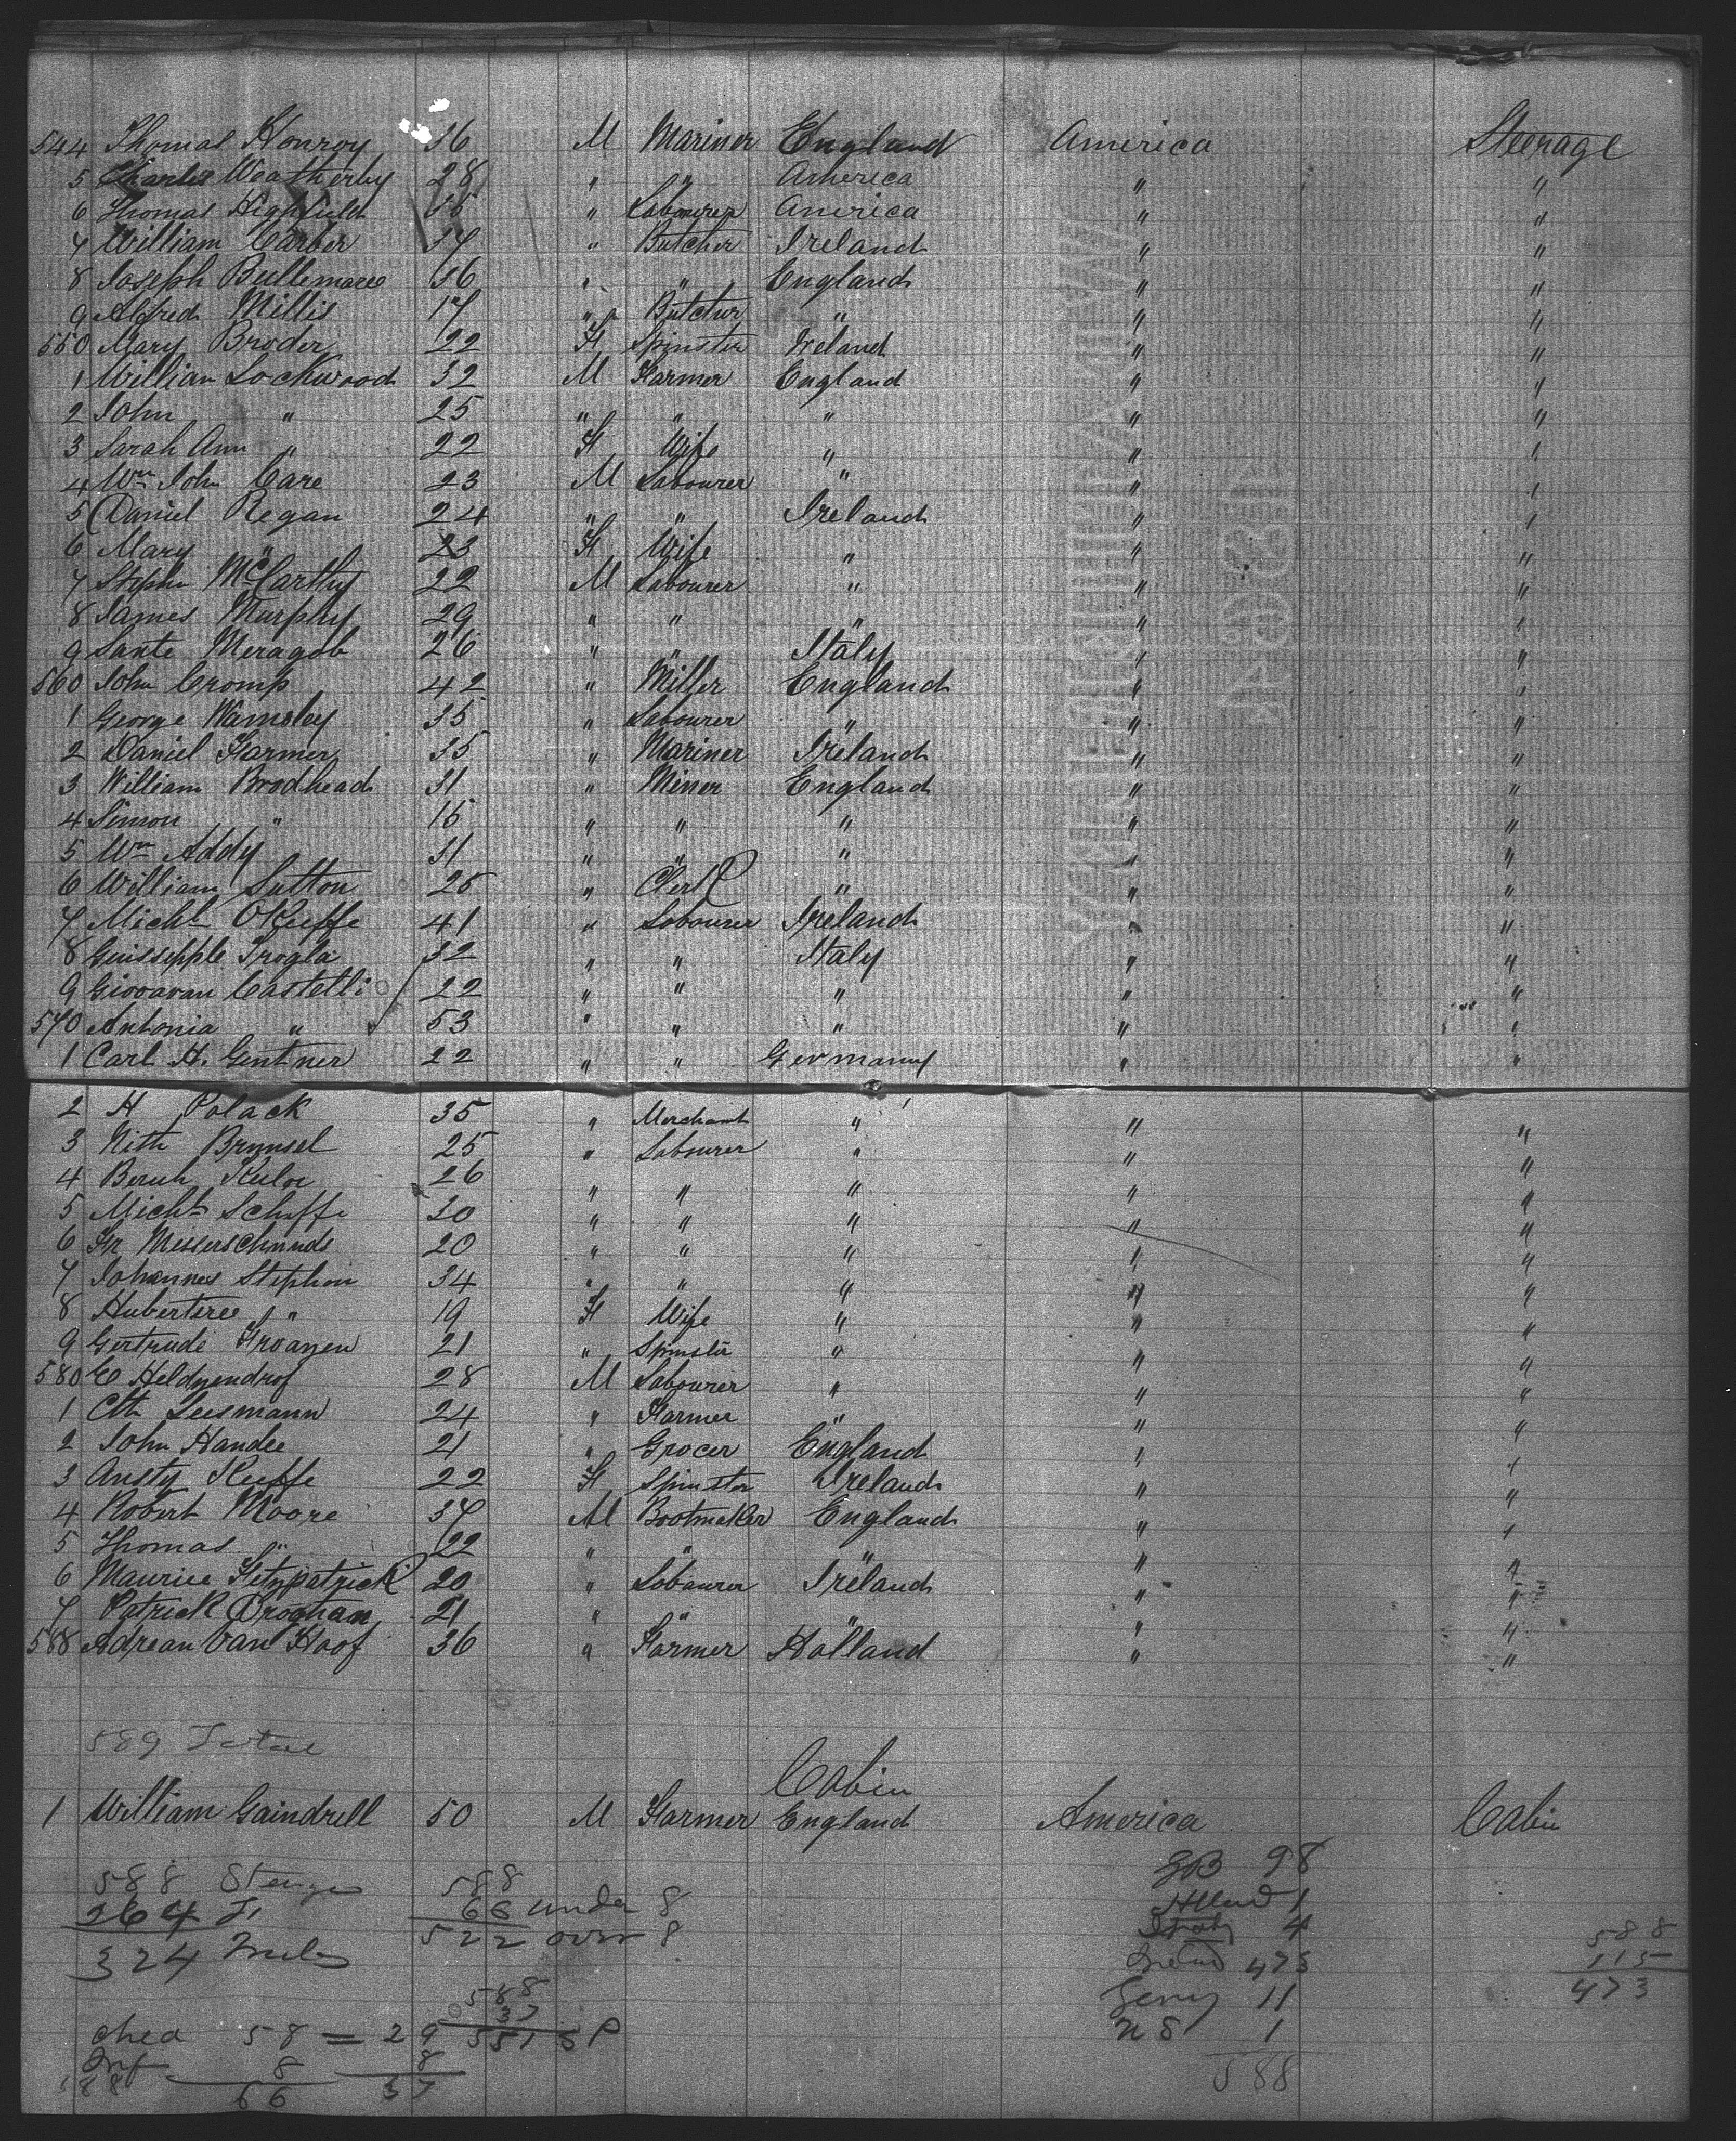 544 Thomas Honroy 36 M Mariner England America Steerage
5 Charles Weatherby 28 " " America " "
6 Thomas Highfield 35 " Labourer America " "
7 William Carber 37 " Butcher Ireland " "
8 Joseph Bullemore 36 " " England " "
9 Alfred Millis 17 " Butcher " " "
550 Mary Broder 22 F Spinster Ireland " "
1 William Lockwood 32 M Farmer England " "
2 John " 25 " " " " "
3 Sarah Ann " 22 F Wife " " "
4 Wm John Care 23 M Labourer " " "
5 Daniel Regan 24 " " Ireland " "
6 Mary " 23 F Wife " " "
7 Stephn McCarthy 22 M Labourer " " "
8 James Murphy 29 " " " " "
9 Sante Meragob 26 " " Italy " "
560 John Cromp 42 " Miller England " "
1 George Wamsley 35 " Labourer " " "
2 Daniel Farmer 35 " Mariner Ireland " "
3 William Brodhead 31 " Miner England " "
4 Simon " 15 " " " " "
5 Wm Addy 31 " " " " "
6 William Sutton 25 " Clerk " " "
7 Michl OKeeffe 41 " Labourer Ireland " "
8 Guisepple Trogla 32 " " Italy " "
9 Giovavan Castelli 22 " " " " "
570 Antonia " 53 " " " " "
1 Carl H. Gentner 22 " " Germany " "
2 H Polack 35 " Merchant " " "
3 Nith Brunsel 25 " Labourer " " "
4 Beruh Keiloc 26 " " " " "
5 Michl Scheffe 30 " " " " "
6 Fr Messerschmids 20 " " " " "
7 Johannes Stephon 34 " " " " "
8 Hubertsree " 19 F Wife " " "
9 Gertrude Froanen 21 " Spinster " " "
580 C Heldyendrof 28 M Labourer " " "
1 Cth Leesmann 24 " Farmer " " "
2 John Handee 21 " Grocer England " "
3 Ansty Keeffe 22 F Spinster Ireland " "
4 Robert Moore 37 M Bootmaker England " "
5 Thomas " 22 " " " " "
6 Maurice Fitzpatrick 20 " Labourer Ireland " "
7 Patrick Droghan 21 " " " " "
588 Adrean Van Hoof 36 " Farmer Holland " "
589 Total
Cabin
1 William Gaindrell 50 M Farmer England America Cabin
GB 98
588 Steerage 588
Holland 1
264 F 66 under 8
Italy 4 588
522 over 8
115
324 Males
Ireland 473
473
Germy 11
588
37
ched 58 = 29 551 SP
US 1
Inf 8 8
588
66 37